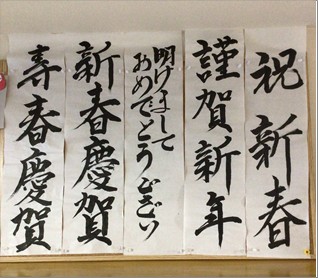 祝新春
謹賀新年
明けまして
おめでとうござい
新春慶賀
寿春慶賀